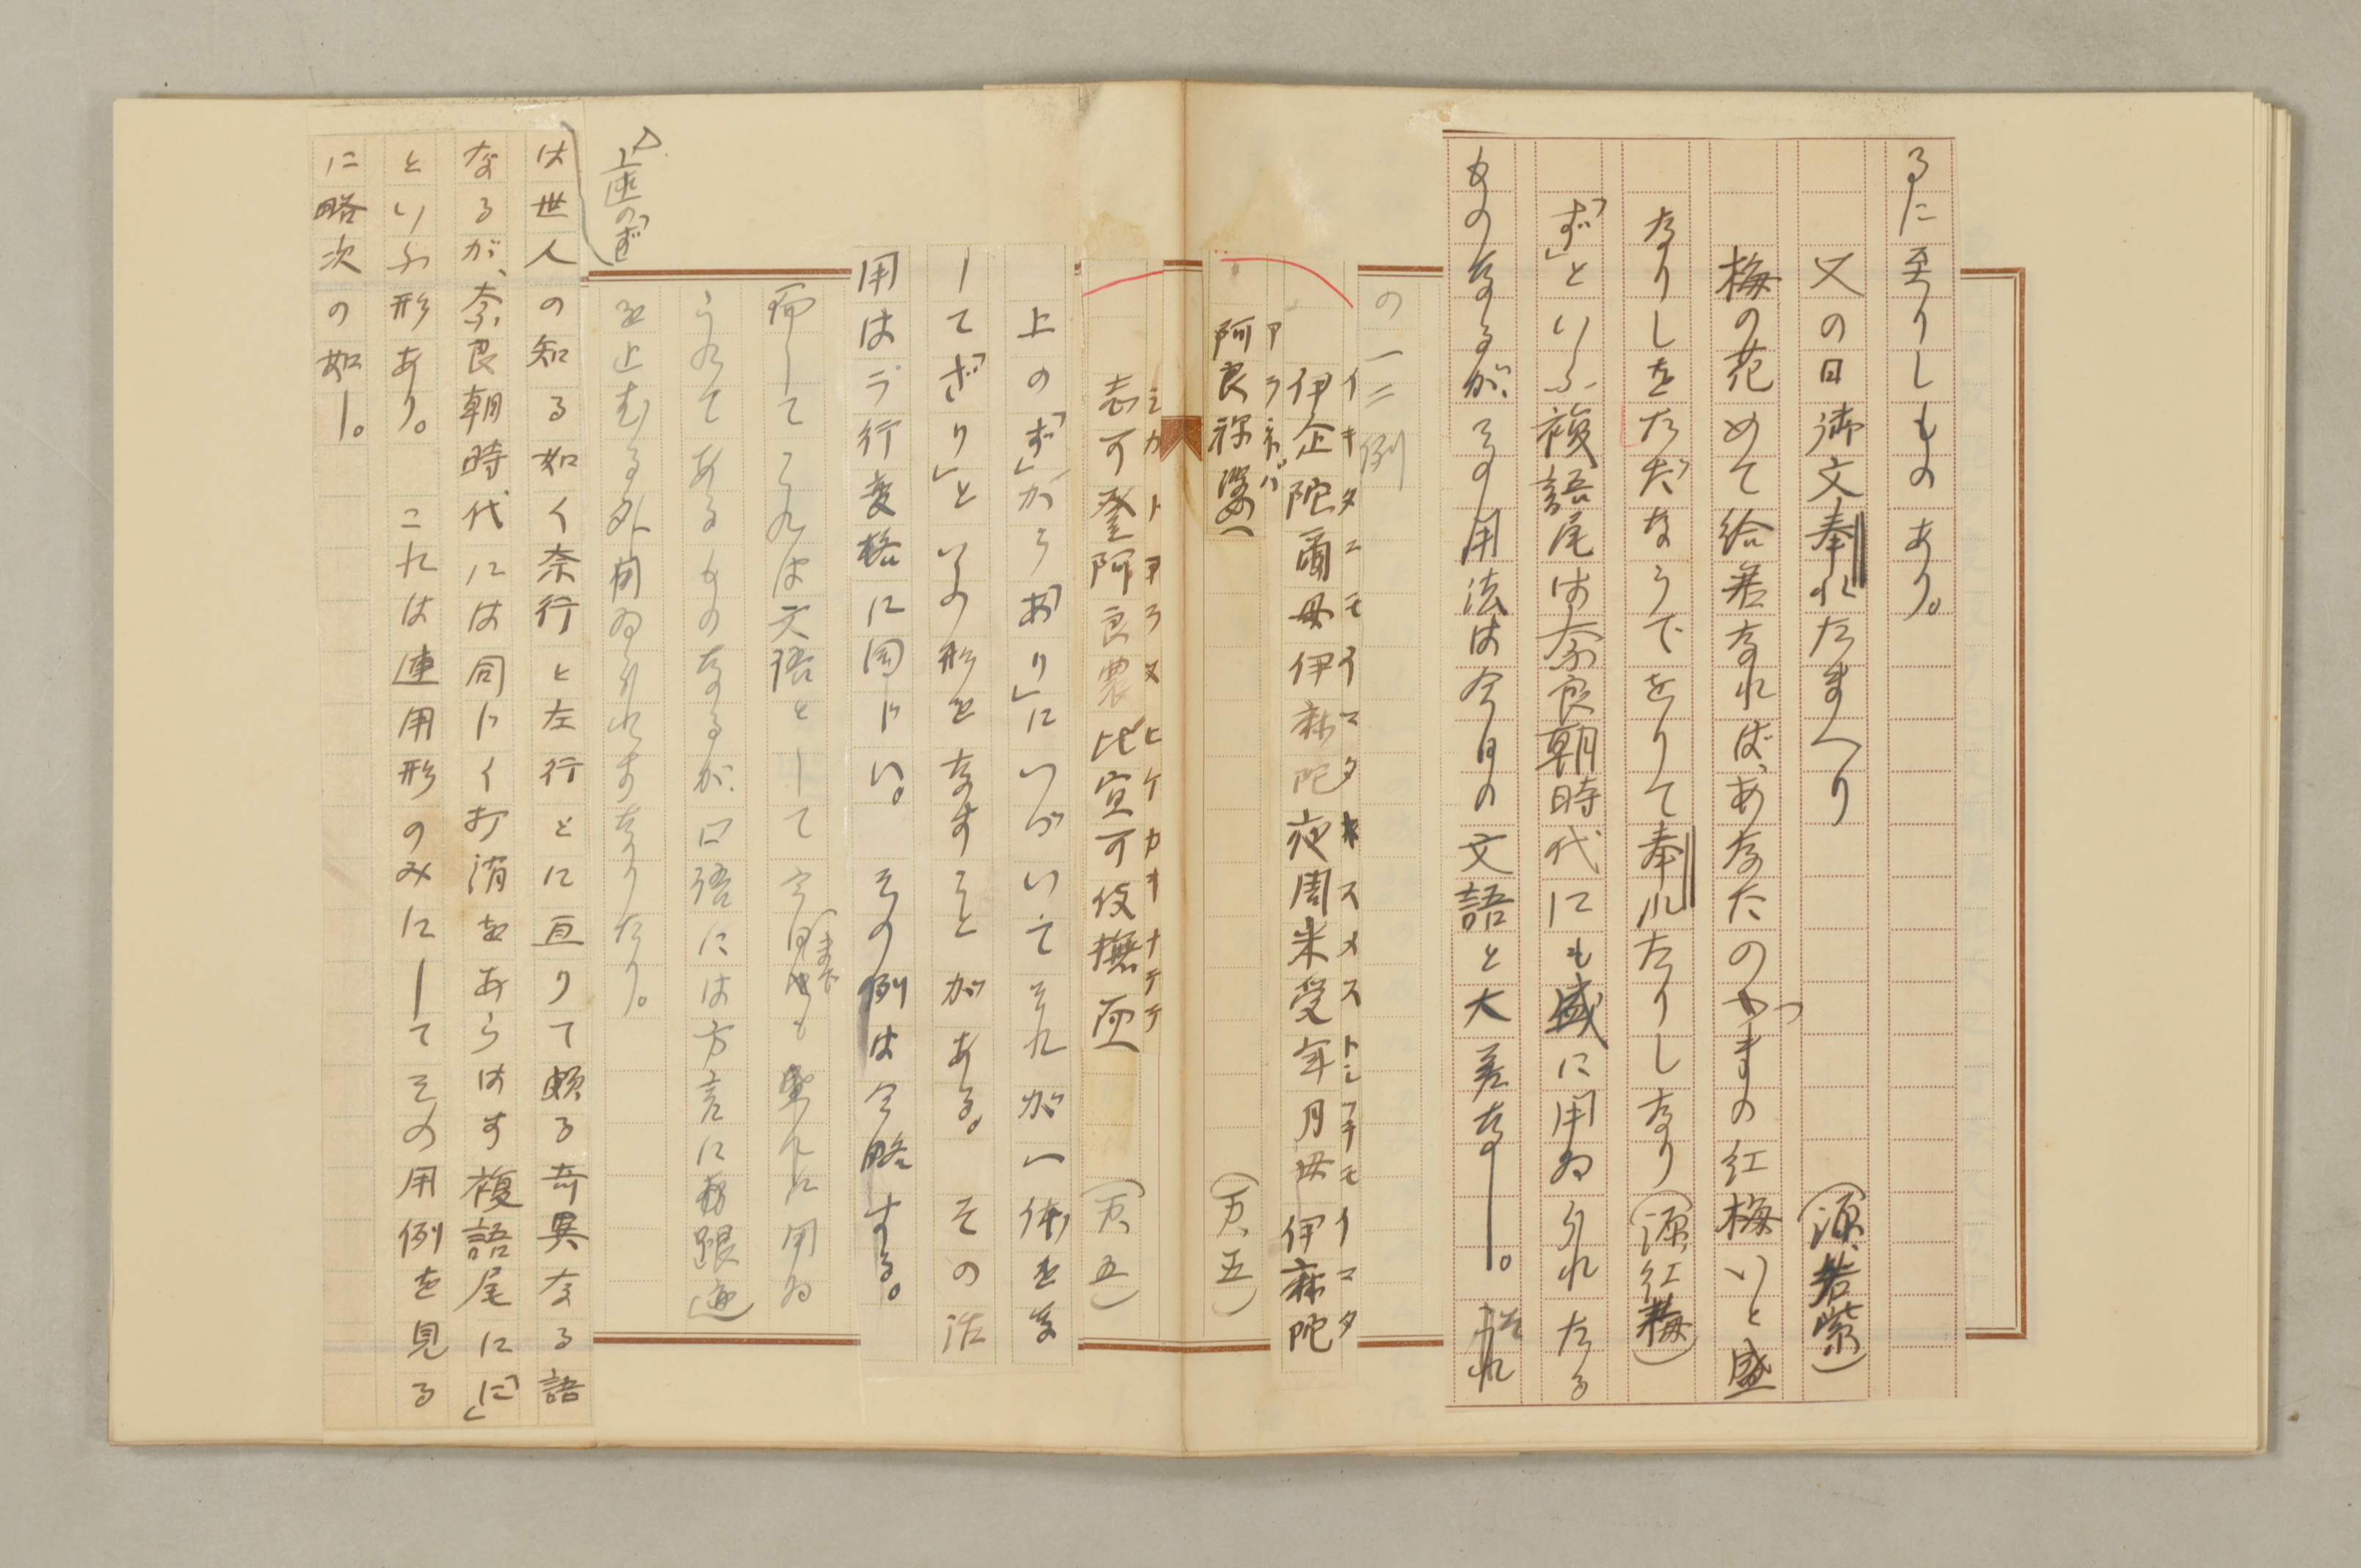 るに至りしものあり。
又の日御文奉れたまへり　（源、若紫）
梅の花めで給君なれば、あなたのつまの紅梅いと盛
なりしをただならでをりて奉れたりしなり（源、紅梅）
「ず」といふ複語尾は奈良朝時代にも盛に用ゐられたる
ものなるが、その用法は今日の文語と大差なし。それ
の一二例
伊企陀爾母伊麻陀夜周米受年月母伊麻陀
イキタニモイマタヤスメストシツキモイマタ
阿良祢婆
アラネバ
（万、五）
志可登阿良農比宜可伎撫而
シカトアラヌヒケカキナテテ
（万、五）
上の「ず」がら「あり」につづいてそれが一体をな
して「ざり」といふ形をなすことがある。その活
用はラ行変格に同じい。その例は今略する。
而してこれは文語として今日までも盛んに用ゐ
られてあるものなるが、口語には方言に痕跡
を止むる外用ゐられずなりたり。
上述の「ず」
は世人の知る如く奈行と左行とに亘りて頗る奇異なる語
なるが、奈良朝時代には同じく打消をあらはす複語尾に「に」
といふ形あり。これは連用形のみにしてその用例を見る
に略次の如し。